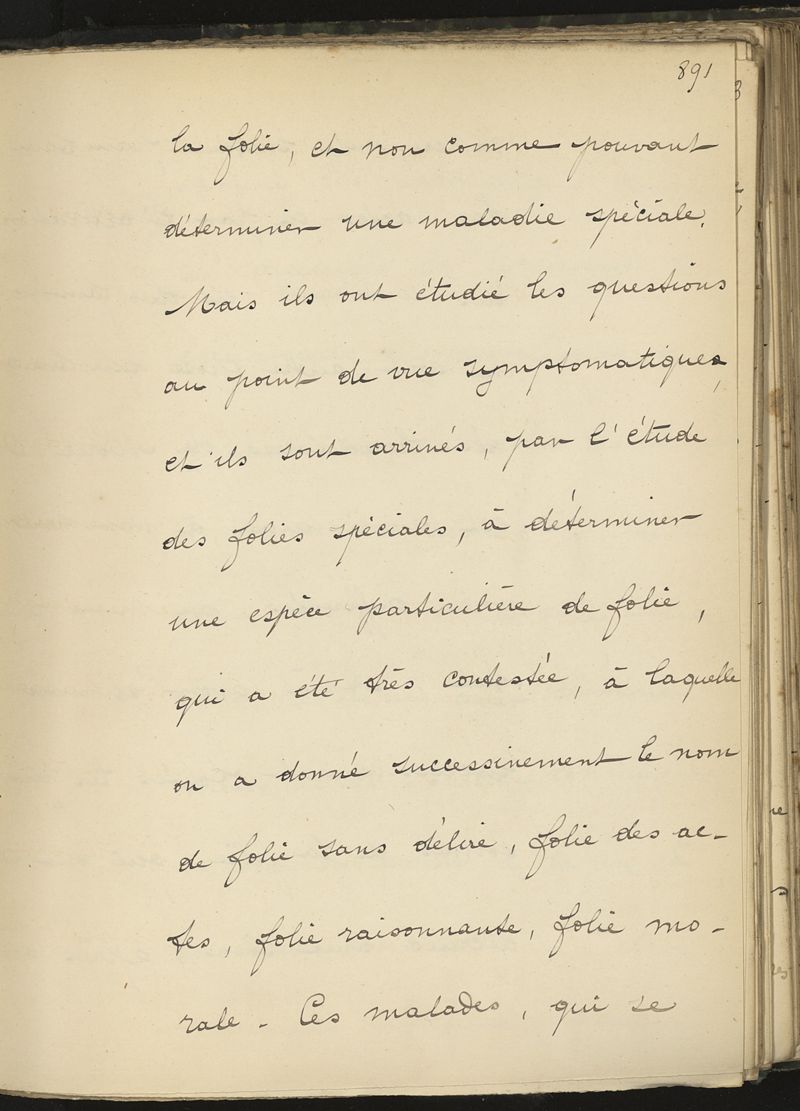 891
la folie, et non comme pouvant
déterminer une maladie spéciale.
Mais ils ont étudié les questions
au point de vue symptomatique,
et ils sont arrivés, par l'étude
des folies spéciales, à déterminer
une espèce particulière de folie,
qui a été très contestée, à laquelle
on a donné successivement le nom
de folie sans délire, folie des ac-
tes, folie raisonnante, folie mo-
rale - Ces malades, qui se